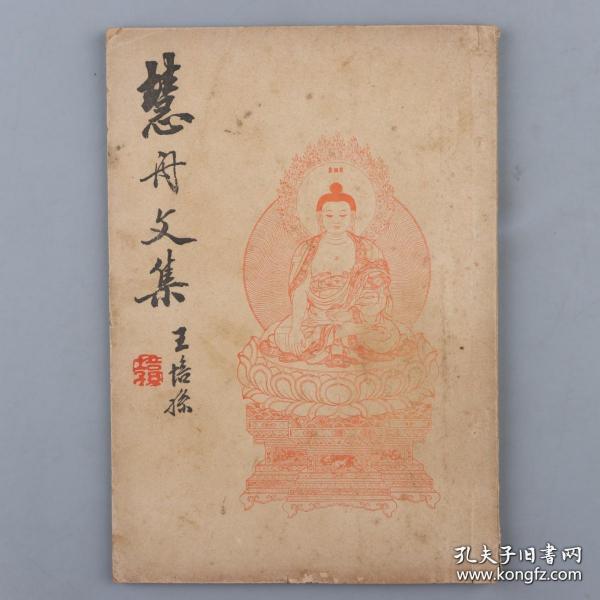 慧舟文集
王培孫
孔夫子旧書网
www.kongfz.com